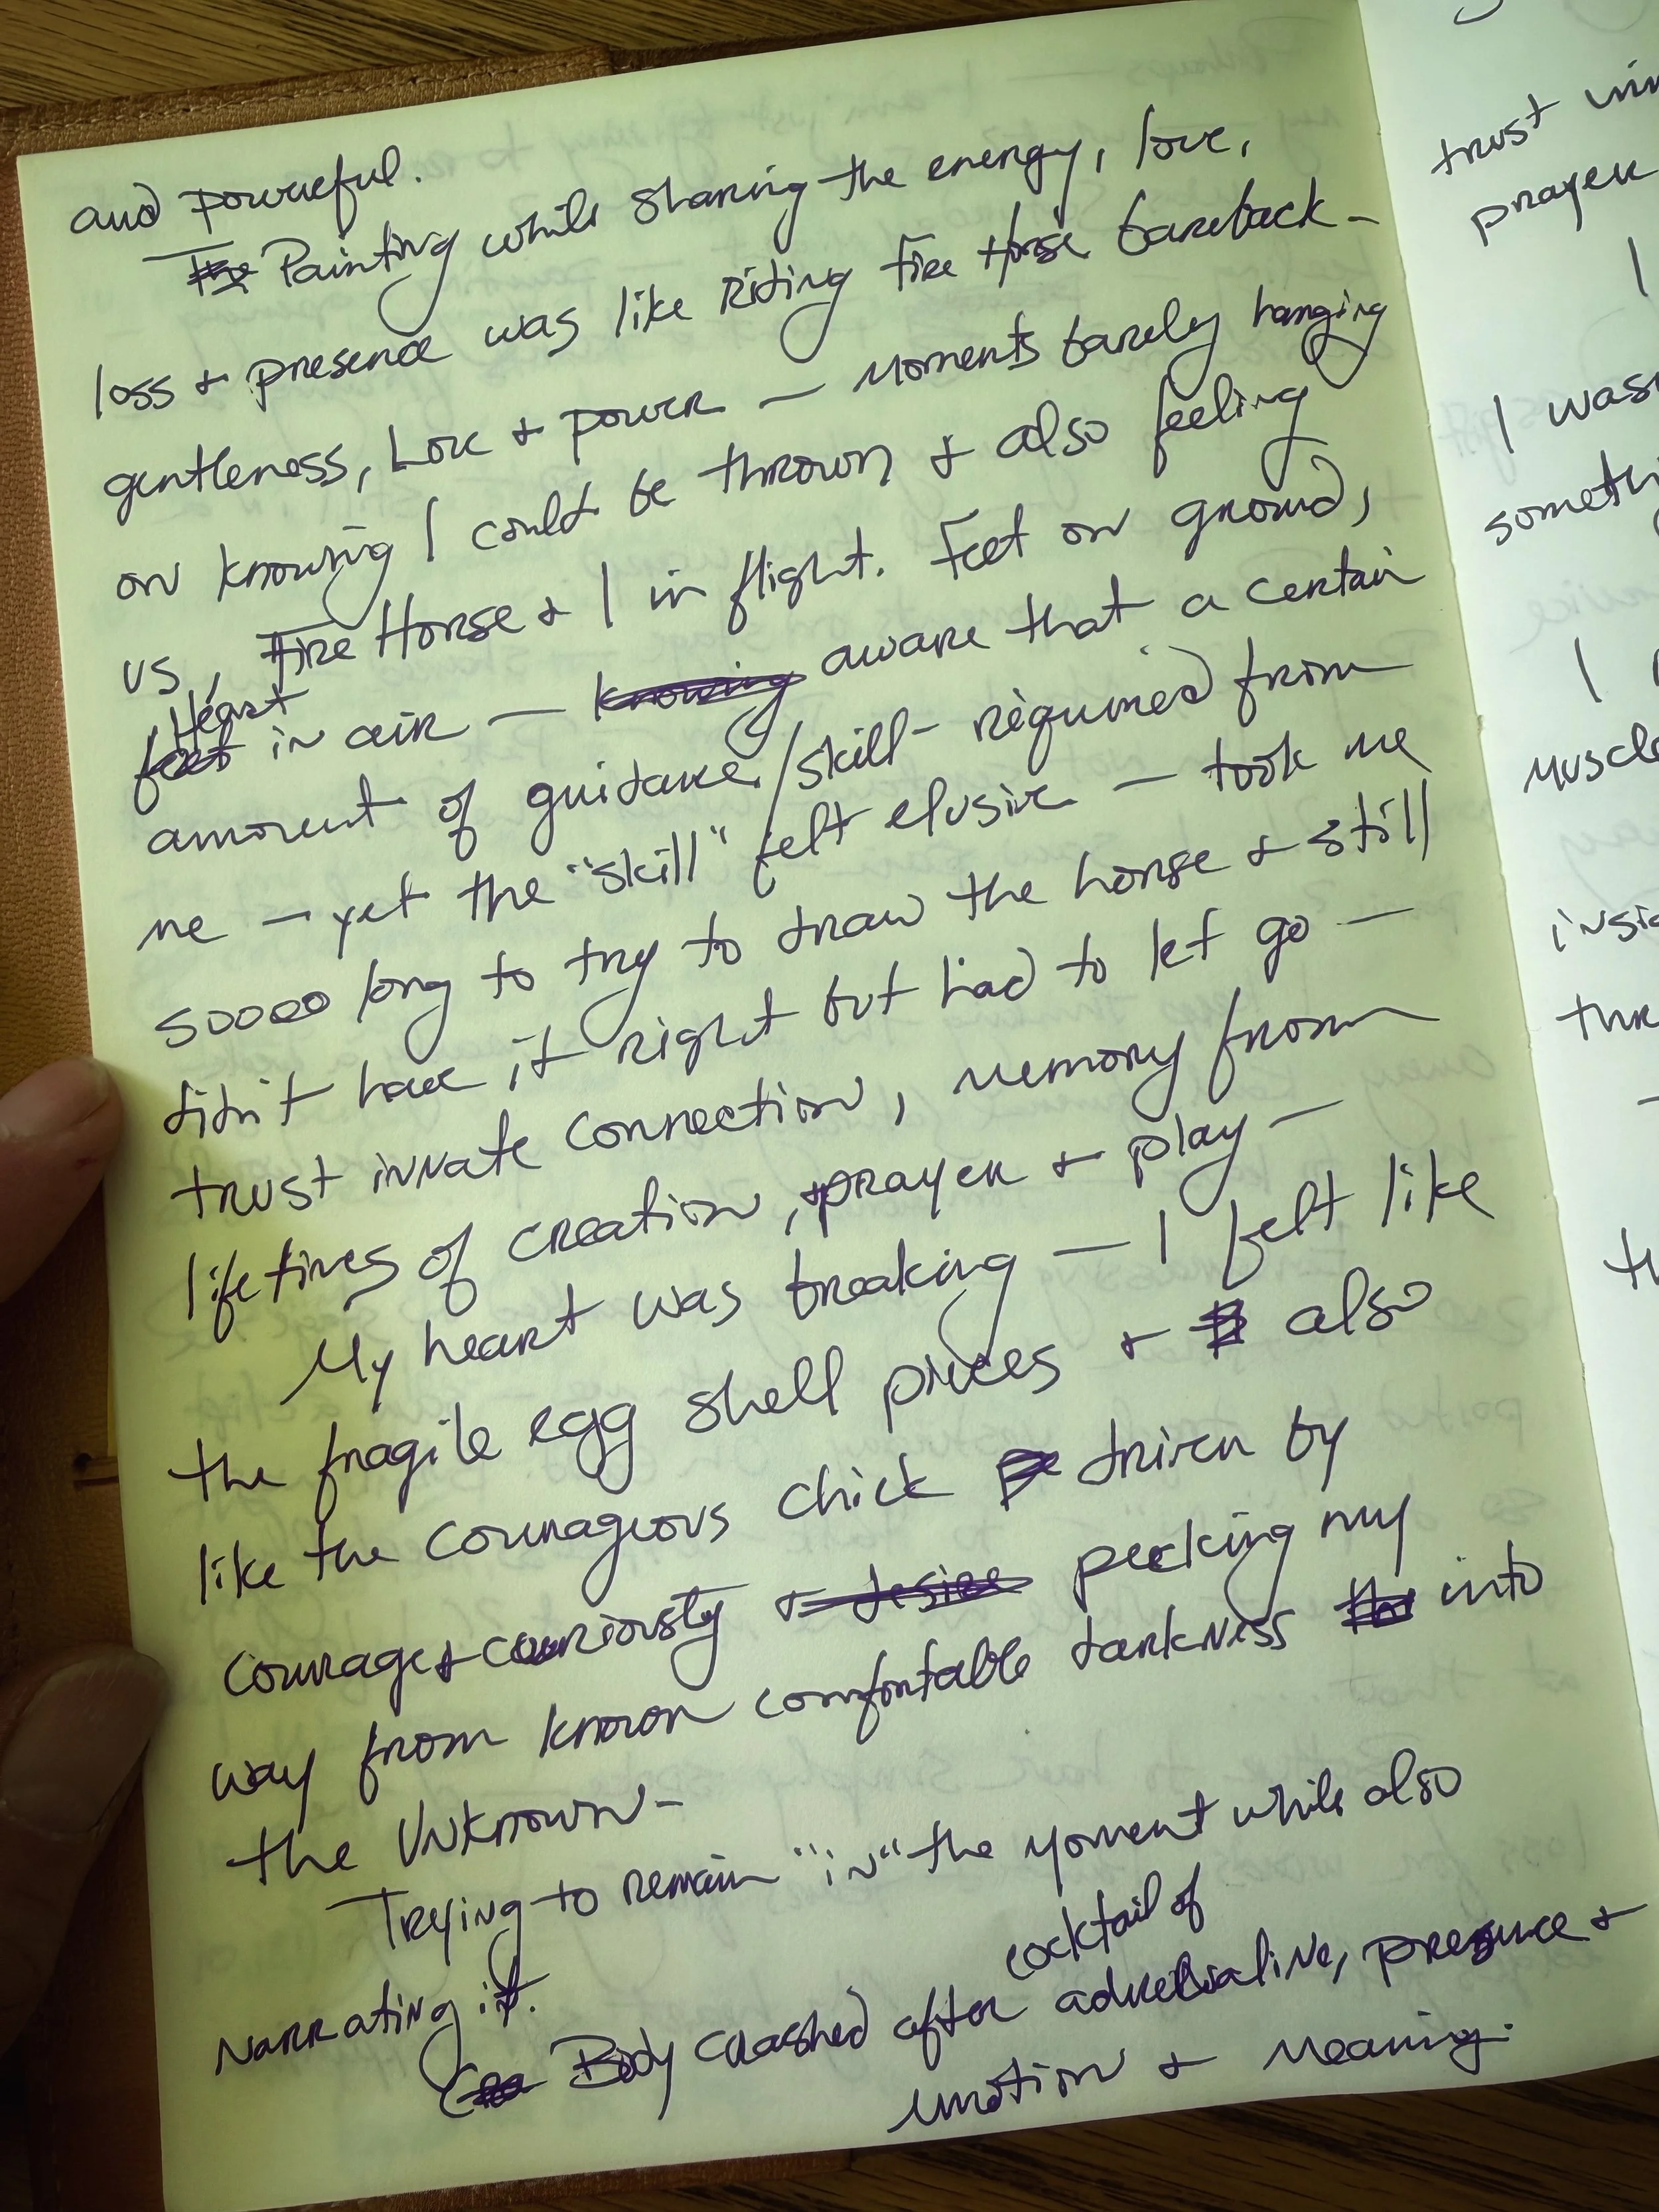 and powerful.
Painting while sharing the energy, love,
loss & presence was like Riding Fire Horse bareback -
gentleness, Love & power - Moments barely hanging
on knowing I could be thrown & also feeling
us, Fire Horse & I in flight. Feet on ground,
Heart
feet in air - knowing aware that a certain
amount of guidance/skill - required from
me - yet the "skill" felt elusive - took me
soooo long to try to draw the horse & still
didn't have it right but had to let go -
trust innate connection, memory from
lifetimes of creation, prayer & play -
My heart was breaking - I felt like
the fragile egg shell pieces & also
like the courageous chick driven by
courage & curiousty & desire pecking my
way from known comfortable darkness into
the Unknown -
Trying to remain "in" the moment while also
narrating it.
cocktail of
Body crashed after adrenaline, presence &
emotion & meaning.
trust inn
prayer
I
I was
somethi
I
muscle
insid
thr
th